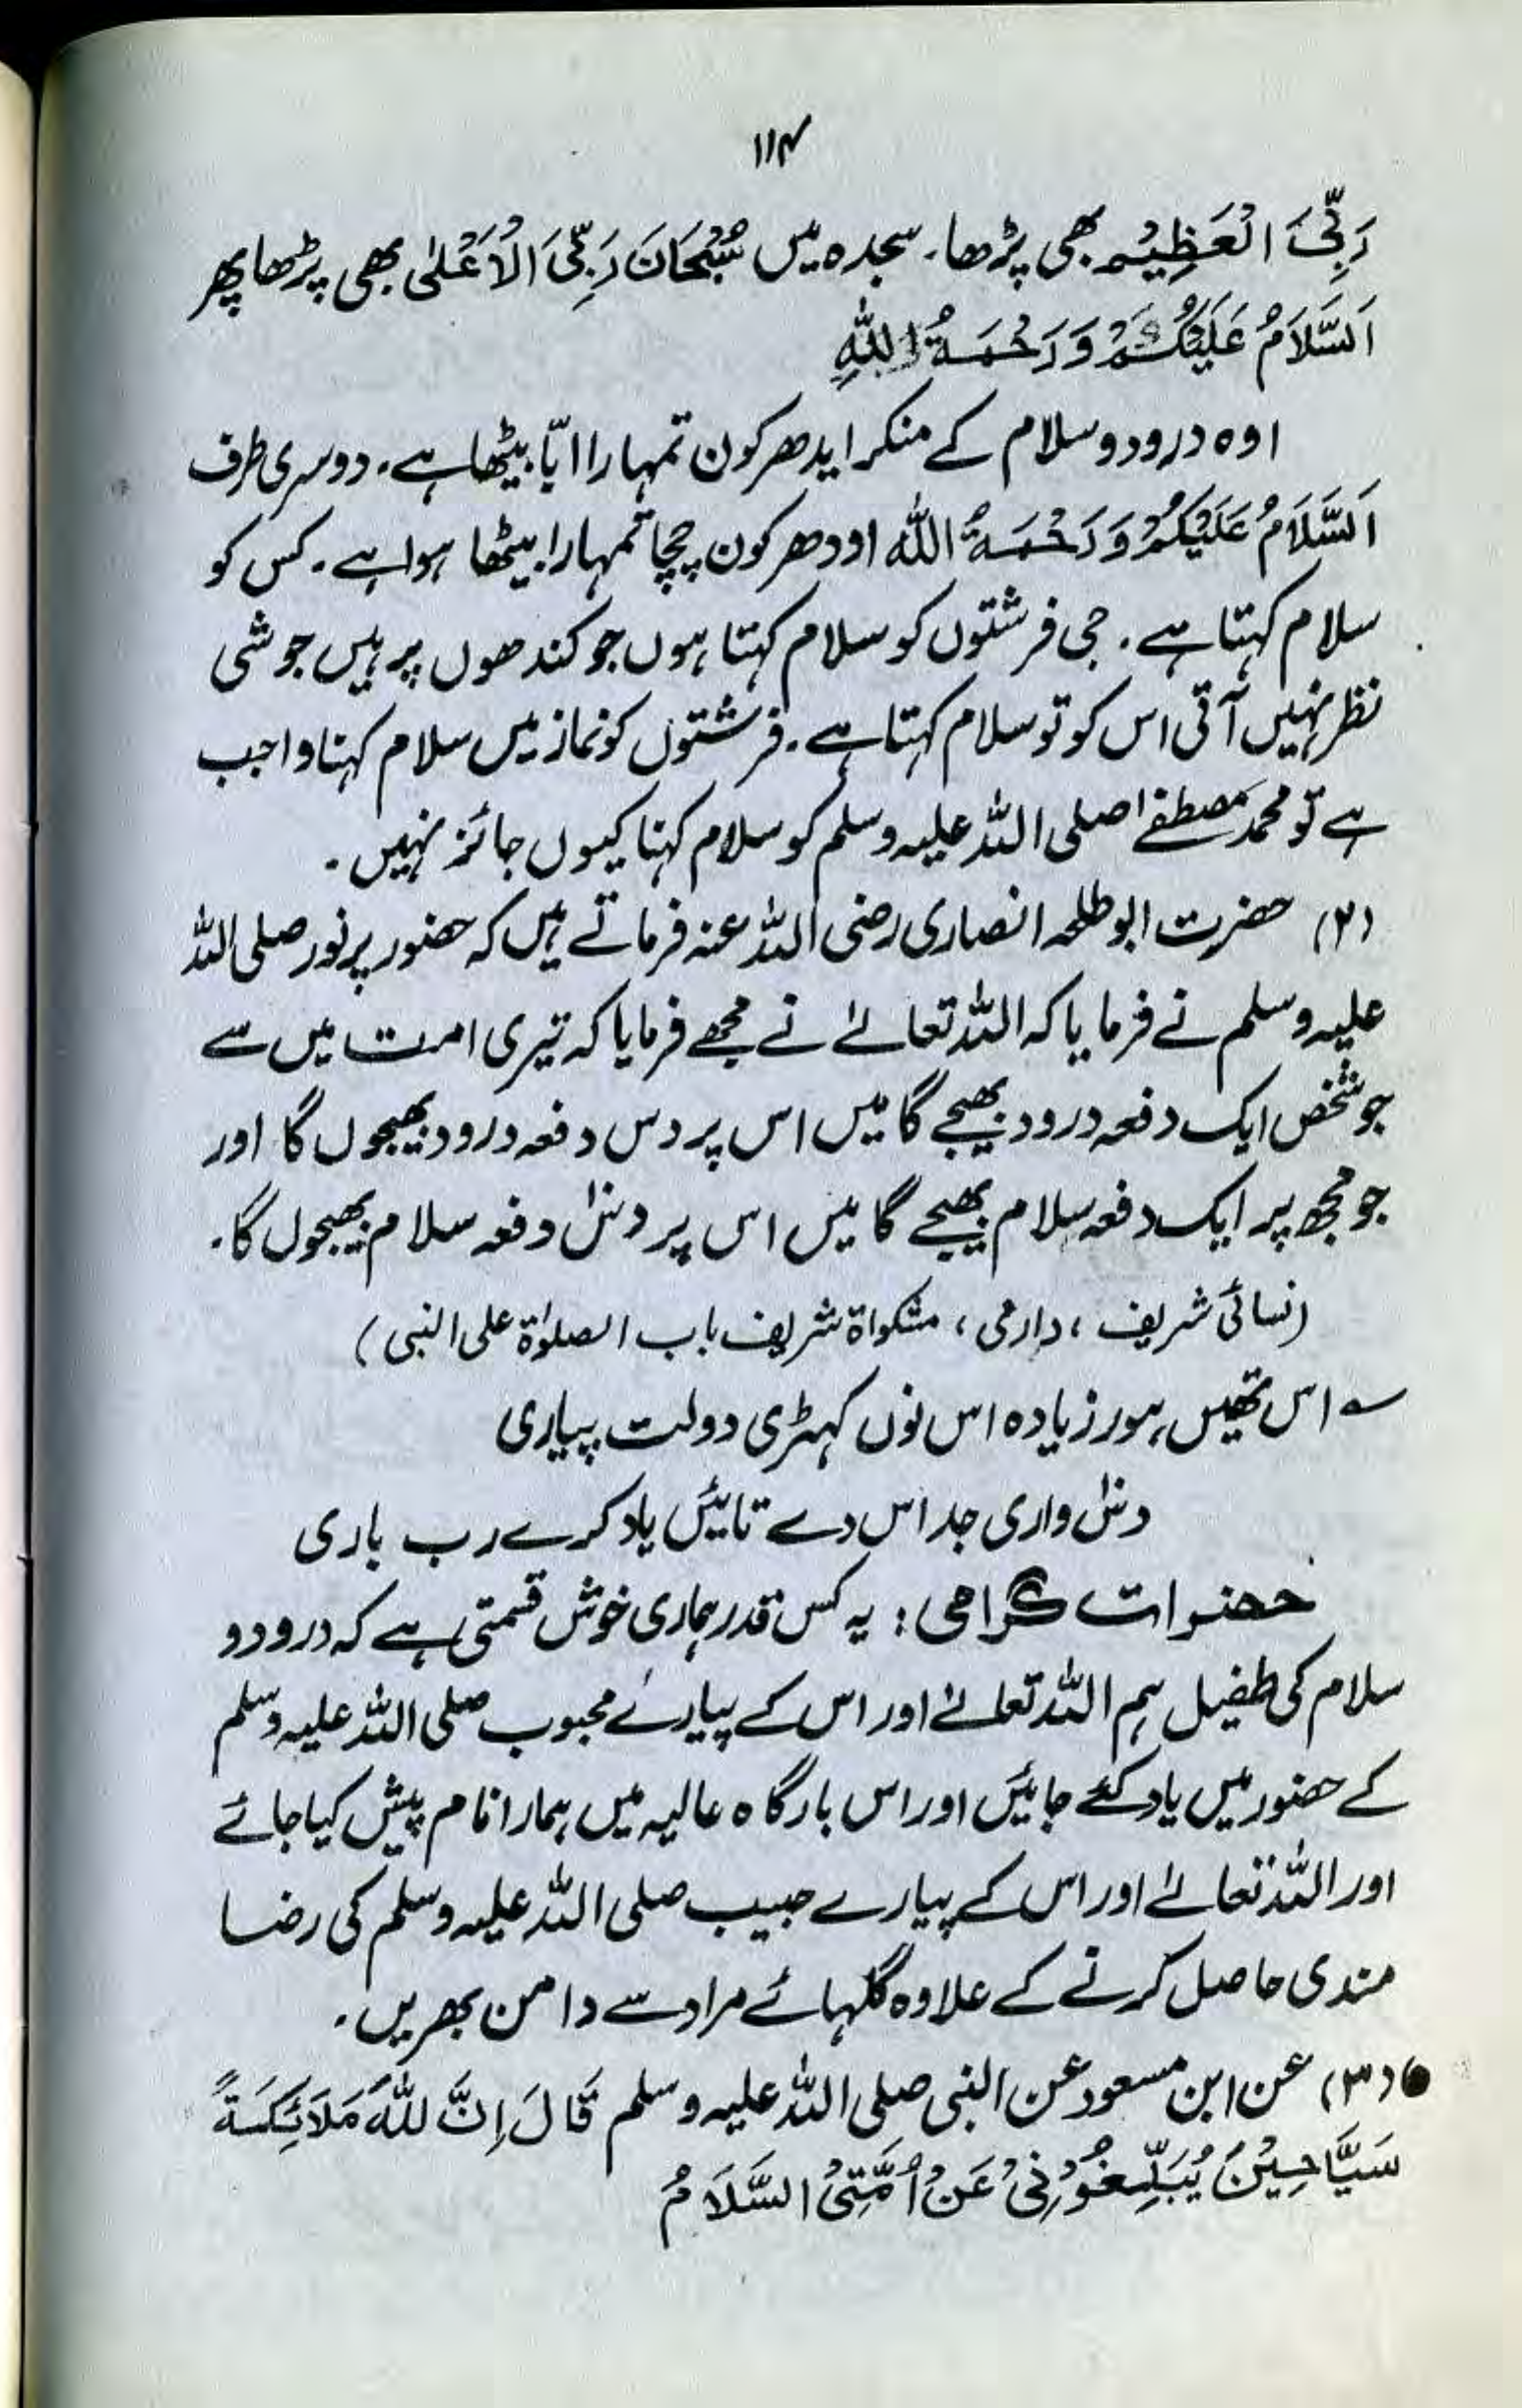 ۱۱۴
رَبِّیَ الْعَظِیْم بھی پڑھا۔ سجدہ میں سُبْحَانَ رَبِّیَ الْاَعْلٰی بھی پڑھا پھر
اَلسَّلَامُ عَلَیْکُمْ وَرَحْمَۃُ اللّٰہِ
اوہ درود و سلام کے منکر ایدھر کون تمہارا ابّا بیٹھا ہے۔ دوسری طرف
اَلسَّلَامُ عَلَیْکُمْ وَرَحْمَۃُ اللّٰہ اودھر کون چچا تمہارا بیٹھا ہوا ہے۔ کس کو
سلام کہتا ہے۔ جی فرشتوں کو سلام کہتا ہوں جو کندھوں پر ہیں جو شی
نظر نہیں آتی اس کو تو سلام کہتا ہے۔ فرشتوں کو نماز میں سلام کہنا واجب
ہے تو محمد مصطفےٰ صلی اللہ علیہ وسلم کو سلام کہنا کیوں جائز نہیں۔
(۲) حضرت ابوطلحہ انصاری رضی اللہ عنہ فرماتے ہیں کہ حضور پرنور صلی اللہ
علیہ وسلم نے فرمایا کہ اللہ تعالےٰ نے مجھے فرمایا کہ تیری امت میں سے
جو شخص ایک دفعہ درود بھیجے گا میں اس پر دس دفعہ درود بھیجوں گا اور
جو مجھ پر ایک دفعہ سلام بھیجے گا میں اس پر دسؔ دفعہ سلام بھیجوں گا۔
(نسائی شریف ، دارمی ، مشکواۃ شریف باب الصلوٰۃ علی النبی)
؎ اس تھیں ہور زیادہ اس نوں کہڑی دولت پیاری
دسؔ واری جد اس دے تائیں یاد کرے رب باری
حضرات گرامی : یہ کس قدر ہماری خوش قسمتی ہے کہ درود و
سلام کی طفیل ہم اللہ تعالےٰ اور اس کے پیارے محبوب صلی اللہ علیہ وسلم
کے حضور میں یاد کئے جائیں اور اس بارگاہ عالیہ میں ہمارا نام پیش کیا جائے
اور اللہ تعالےٰ اور اس کے پیارے حبیب صلی اللہ علیہ وسلم کی رضا
مندی حاصل کرنے کے علاوہ گلہائے مراد سے دامن بھریں۔
● (۳) عن ابن مسعود عن النبی صلی اللہ علیہ وسلم قَالَ اِنَّ لِلّٰہِ مَلَائِکَۃً
سَیَّاحِیْنَ یُبَلِّغُوْنِیْ عَنْ اُمَّتِیْ السَّلَامُ